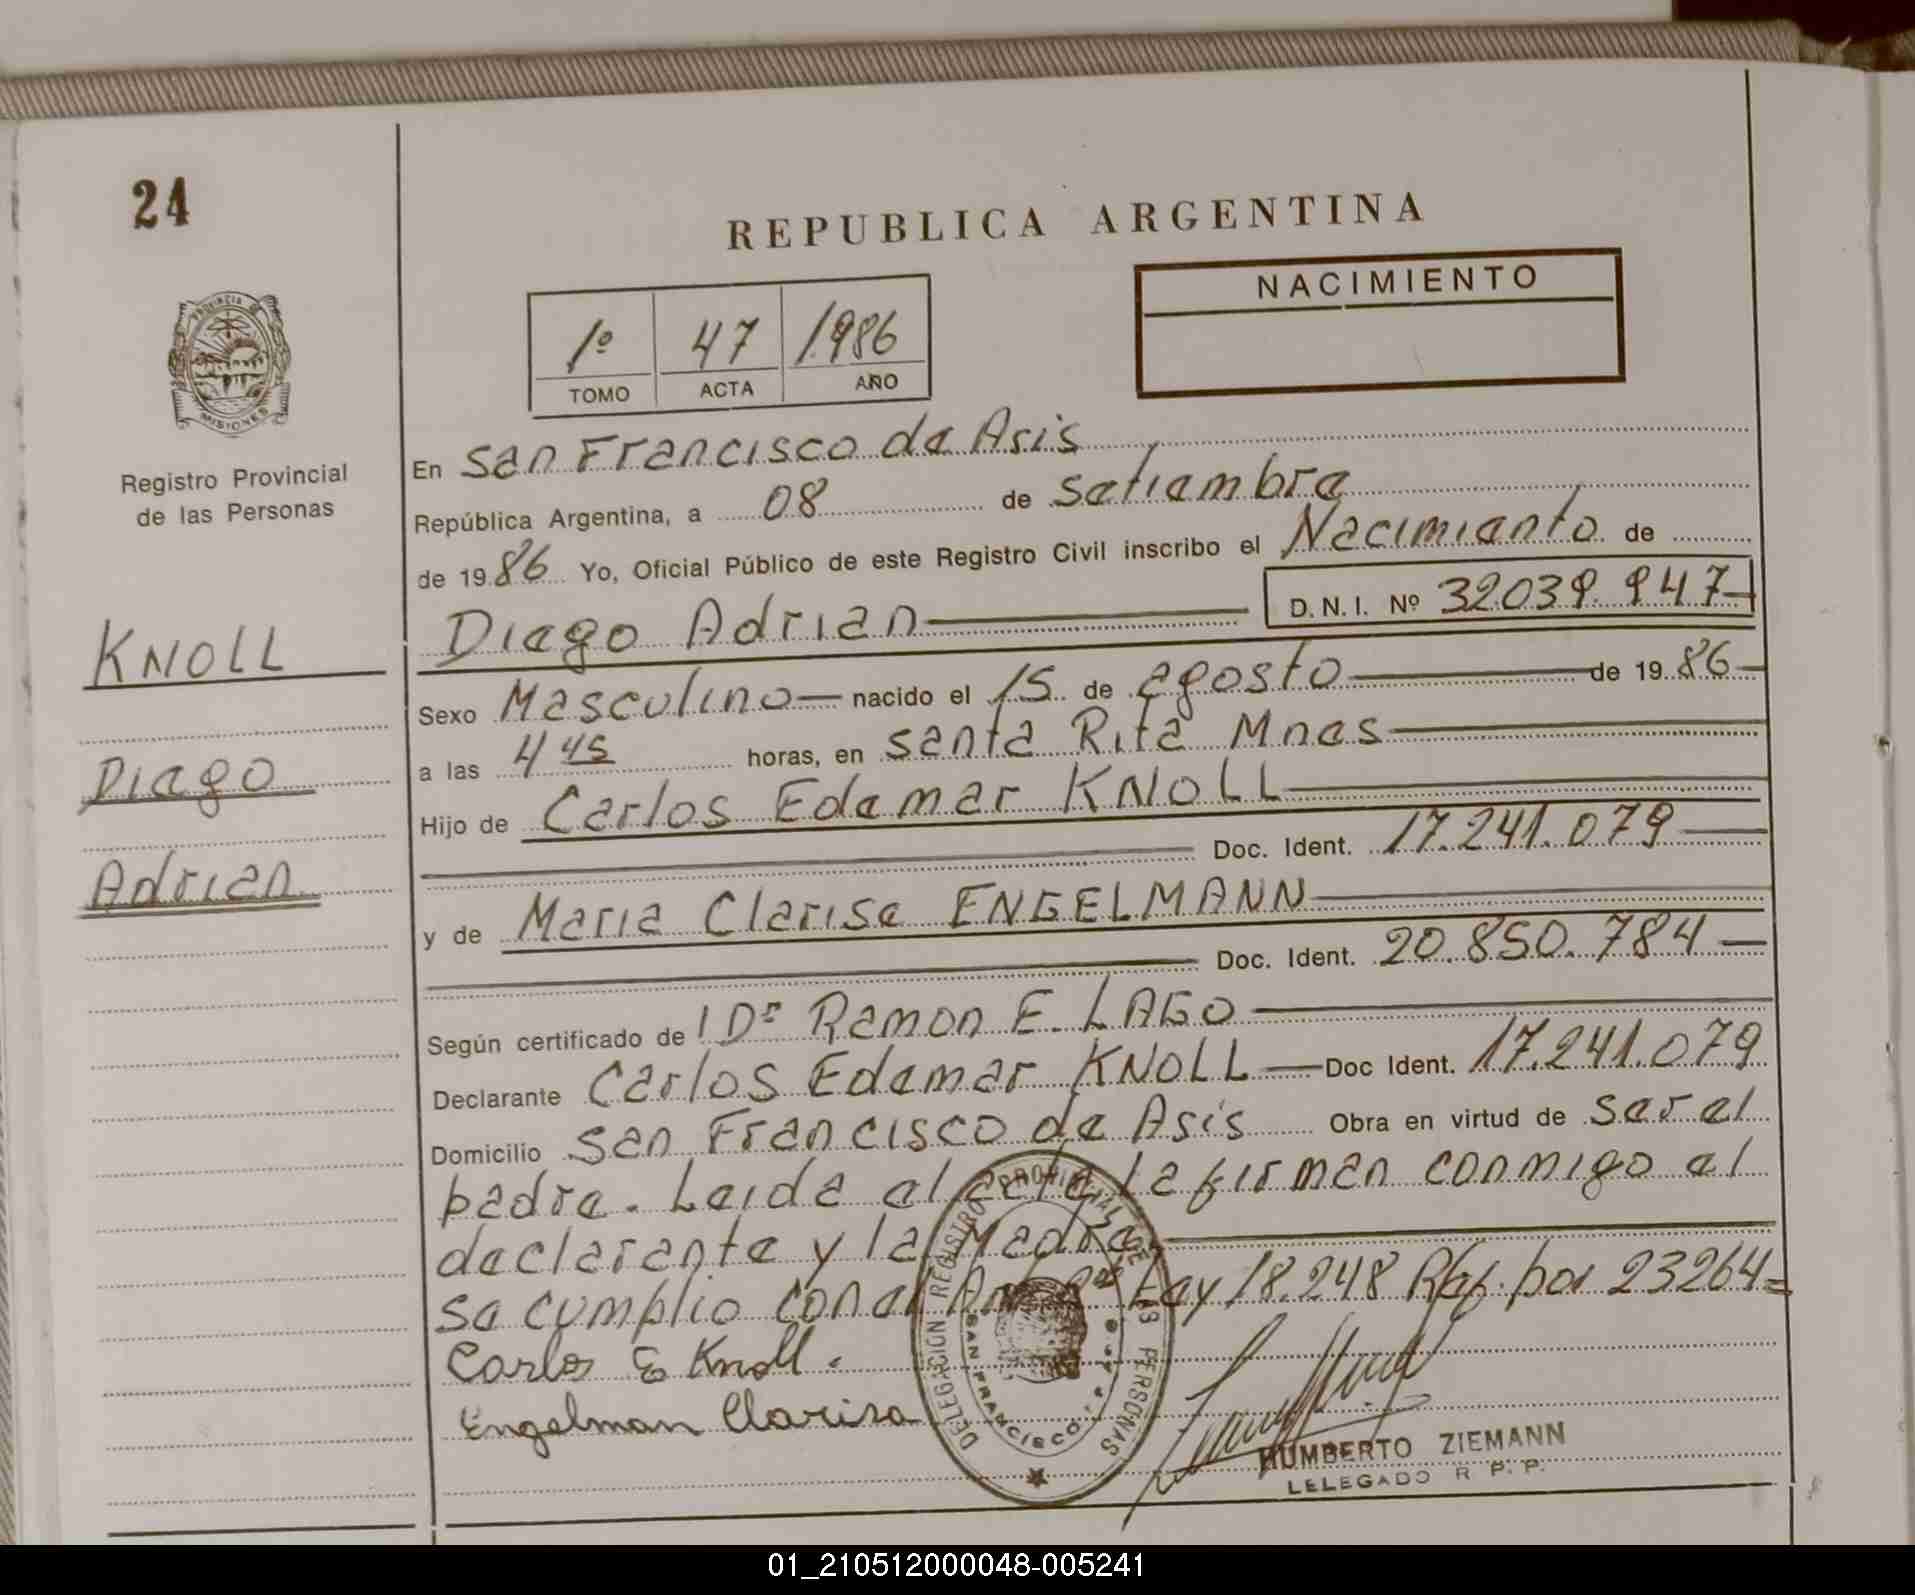 24
REPUBLICA ARGENTINA
NACIMIENTO
1º 47 1986
TOMO ACTA AÑO
PROVINCIA DE
MISIONES
Registro Provincial
de las Personas
KNOLL
Diego
Adrian
En San Francisco de Asis
República Argentina, a 08 de Setiembre
de 1986 Yo, Oficial Público de este Registro Civil inscribo el Nacimiento de
Diego Adrian D.N.I. Nº 32.039.947
Sexo Masculino nacido el 15 de agosto de 1986
a las 4 45 horas, en Santa Rita Mnes
Hijo de Carlos Edemar KNOLL
Doc. Ident. 17.241.079
y de Maria Clarise ENGELMANN
Doc. Ident. 20.850.784
Según certificado de Dr Ramon E. LAGO
Declarante Carlos Edemar KNOLL Doc Ident. 17.241.079
Domicilio San Francisco de Asis Obra en virtud de ser el
padre. Leida el acta la firman conmigo el
declarante y la Madre
se cumplio con el Ley 18.248 por 23264
Carlos E Knoll.
Engelman Clarisa
DELEGACION REGISTRO PROVINCIAL DE LAS PERSONAS
SAN FRANCISCO
HUMBERTO ZIEMANN
LELEGADO R. P. P.
01_210512000048-005241